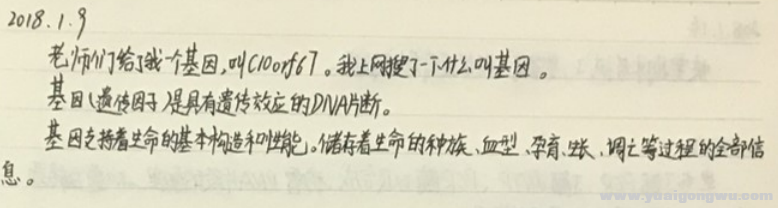 2018.1.9
老师们给了我一个基因,叫C10orf67。我上网搜了一下什么叫基因。
基因(遗传因子)是具有遗传效应的DNA片断。
基因支持着生命的基本构造和性能。储存着生命的种族、血型、孕育、生长、凋亡等过程的全部信
息。
www.yuaigongwu.com